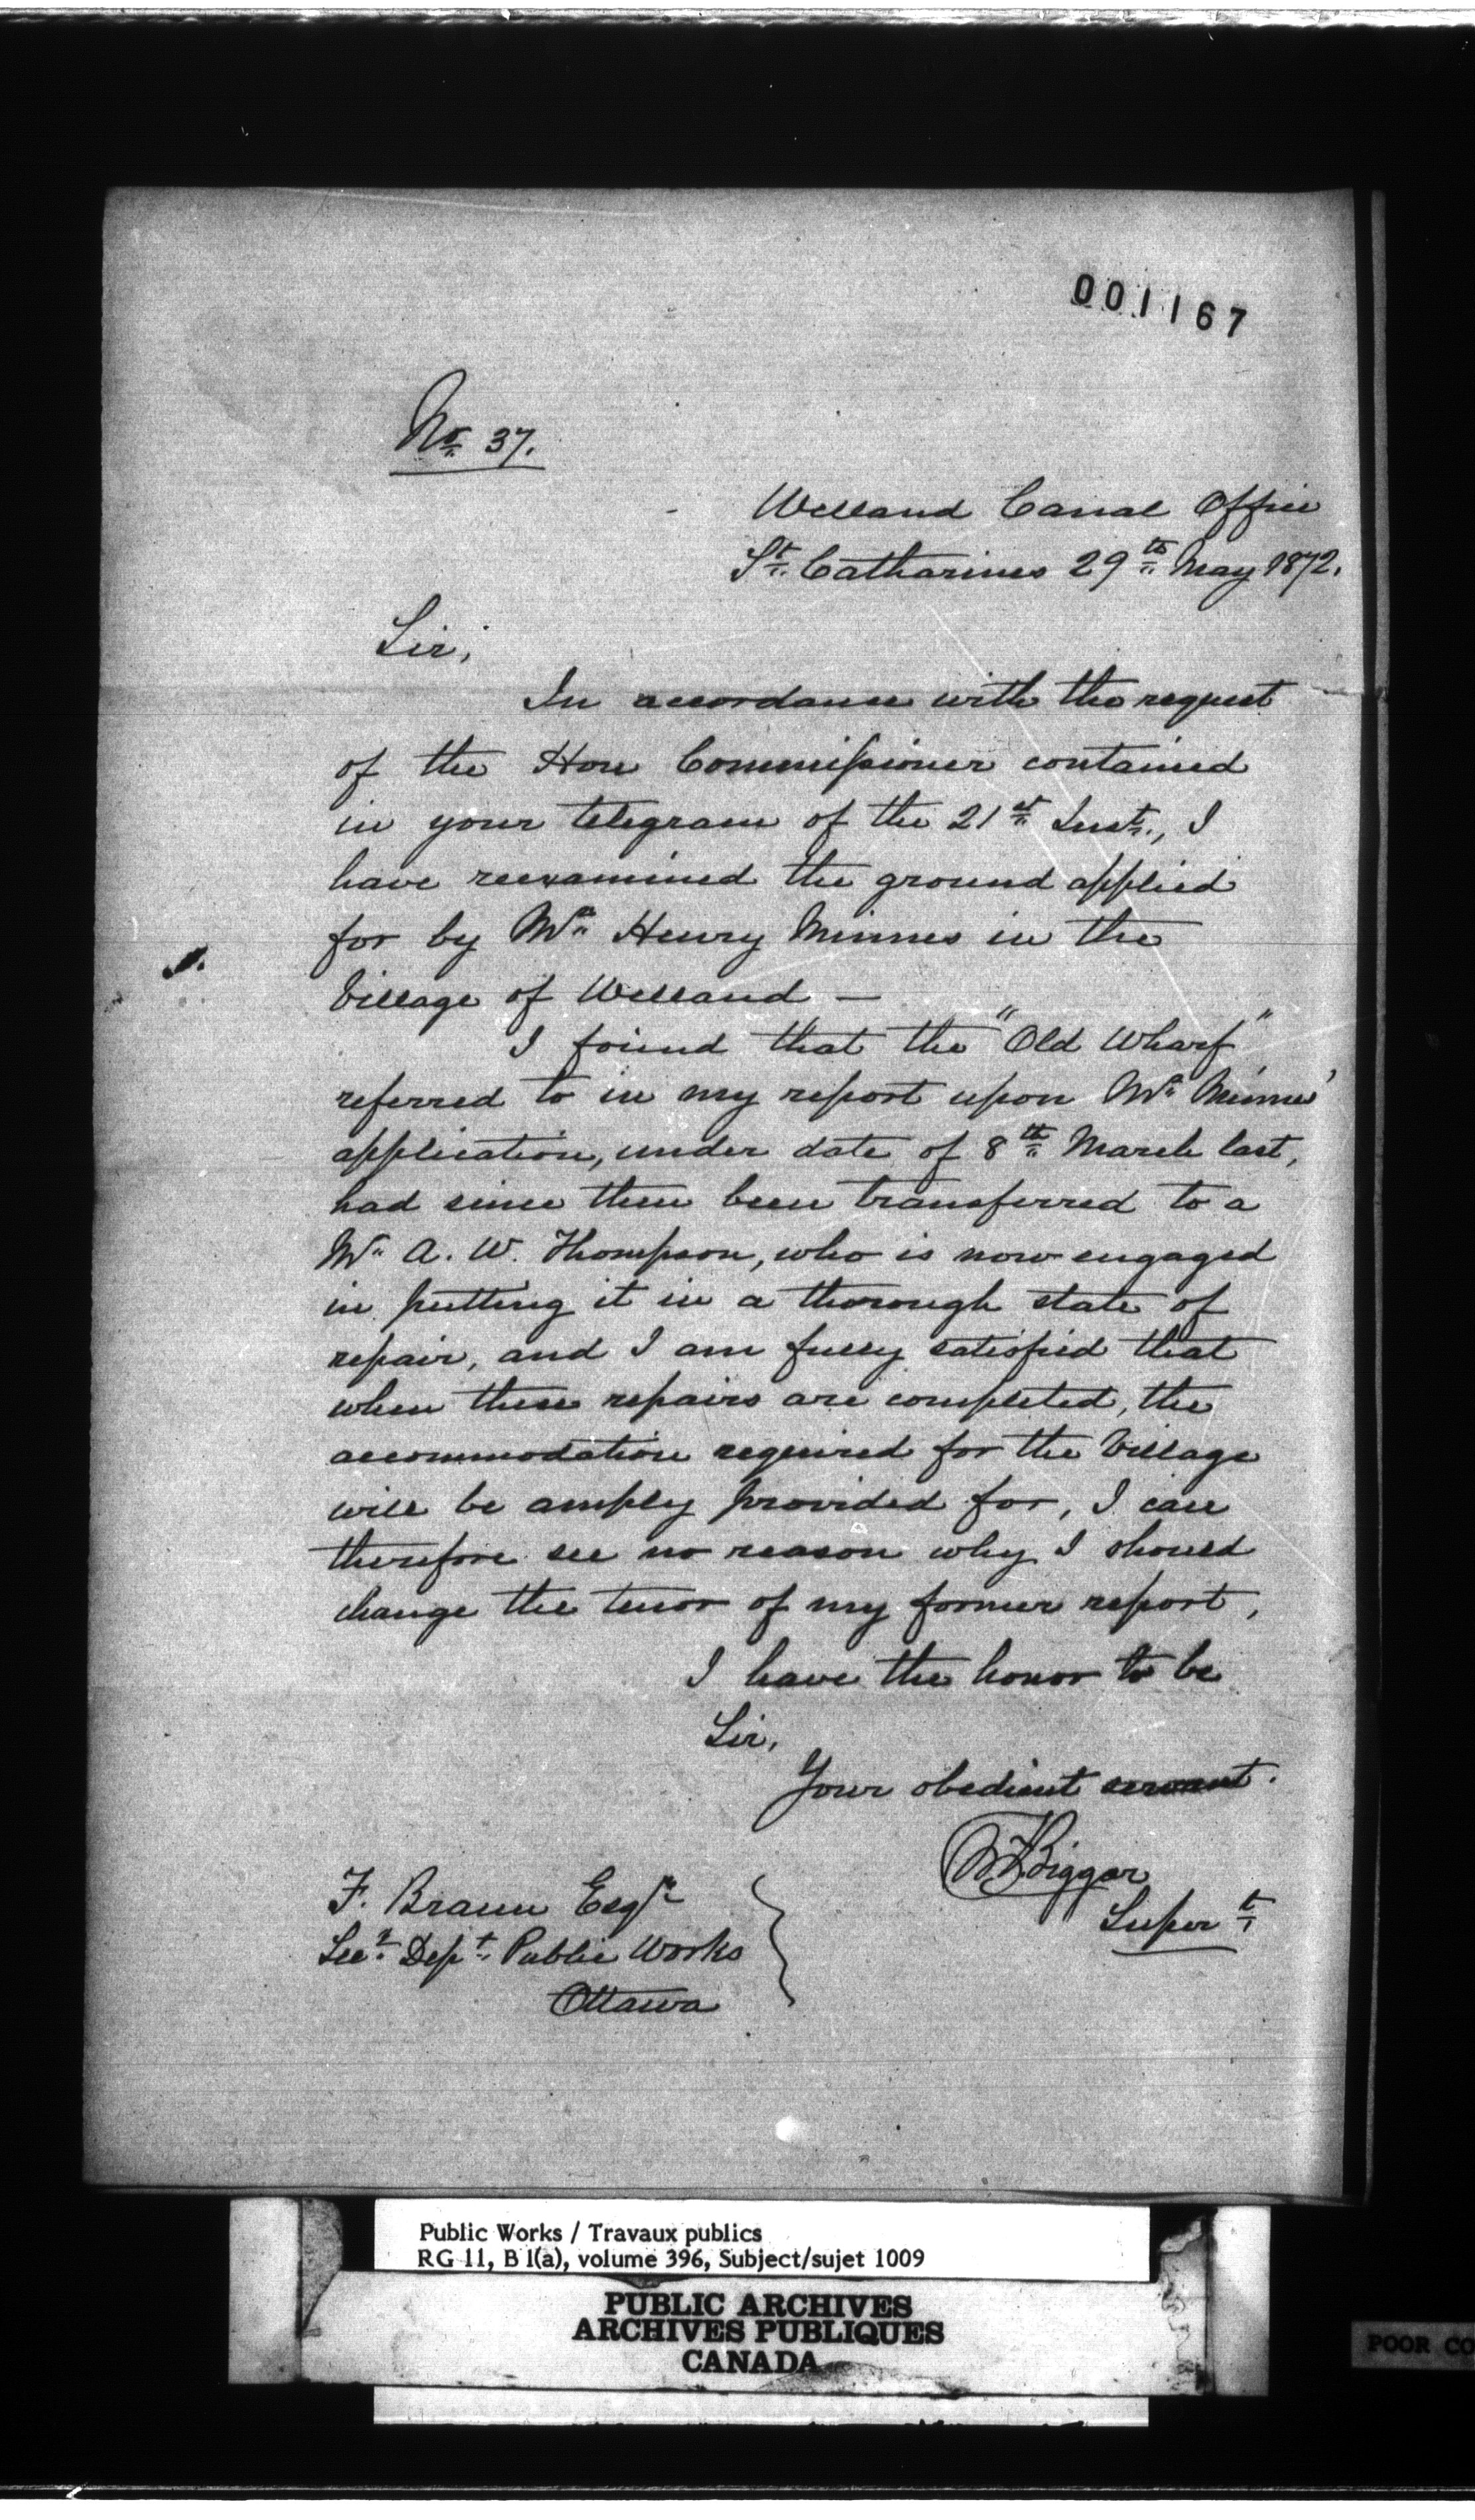 001167
No. 37.
Welland Canal Office
St. Catharines 29th May 1872.
Sir,
In accordance with the request
of the Hon Commissioner contained
in your telegram of the 21st Inst., I
have reexamined the ground applied
for by Mr Henry Minnes in the
Village of Welland —
I found that the "Old Wharf"
referred to in my report upon Mr Minnes'
application, under date of 8th March last,
had since then been transferred to a
Mr A. W. Thompson, who is now engaged
in putting it in a thorough state of
repair, and I am fully satisfied that
when these repairs are completed, the
accommodation required for the Village
will be amply provided for, I can
therefore see no reason why I should
change the tenor of my former report,
I have the honor to be
Sir,
Your obedient servant.
Biggar
Supert
F. Braun Esqr
Secy. Dept. Public Works
Ottawa
Public Works / Travaux publics
RG 11, B 1(a), volume 396, Subject/sujet 1009
PUBLIC ARCHIVES
ARCHIVES PUBLIQUES
CANADA
POOR CO